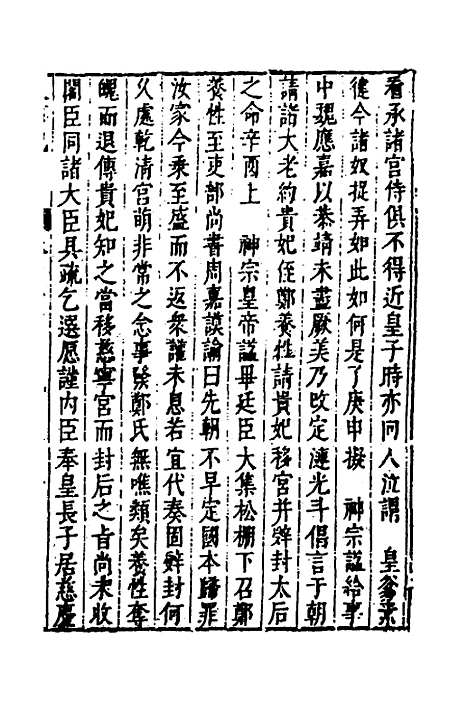 看承諸宮侍俱不得近皇子時亦同人泣謂　皇爺素
健今諸奴捉弄如此如何是了庚申擬　神宗諡給事
中魏應嘉以恭靖未盡厥美乃改定漣光斗倡言于朝
請諸大老約貴妃侄鄭養性請貴妃移宮并辤封太后
之命辛酉上　神宗皇帝諡畢廷臣大集松棚下召鄭
養性至吏部尚書周嘉謨諭曰先朝不早定國本歸罪
汝家今乘至盛而不返衆讙未息若宜代奏固辤封何
久處乾清宮萌非常之念事發鄭氏無噍類矣養性奪
魄而退傳貴妃知之當移慈寧宮而封后之㫖尚未收
閣臣同諸大臣具疏乞選愿謹內臣奉皇長子居慈慶